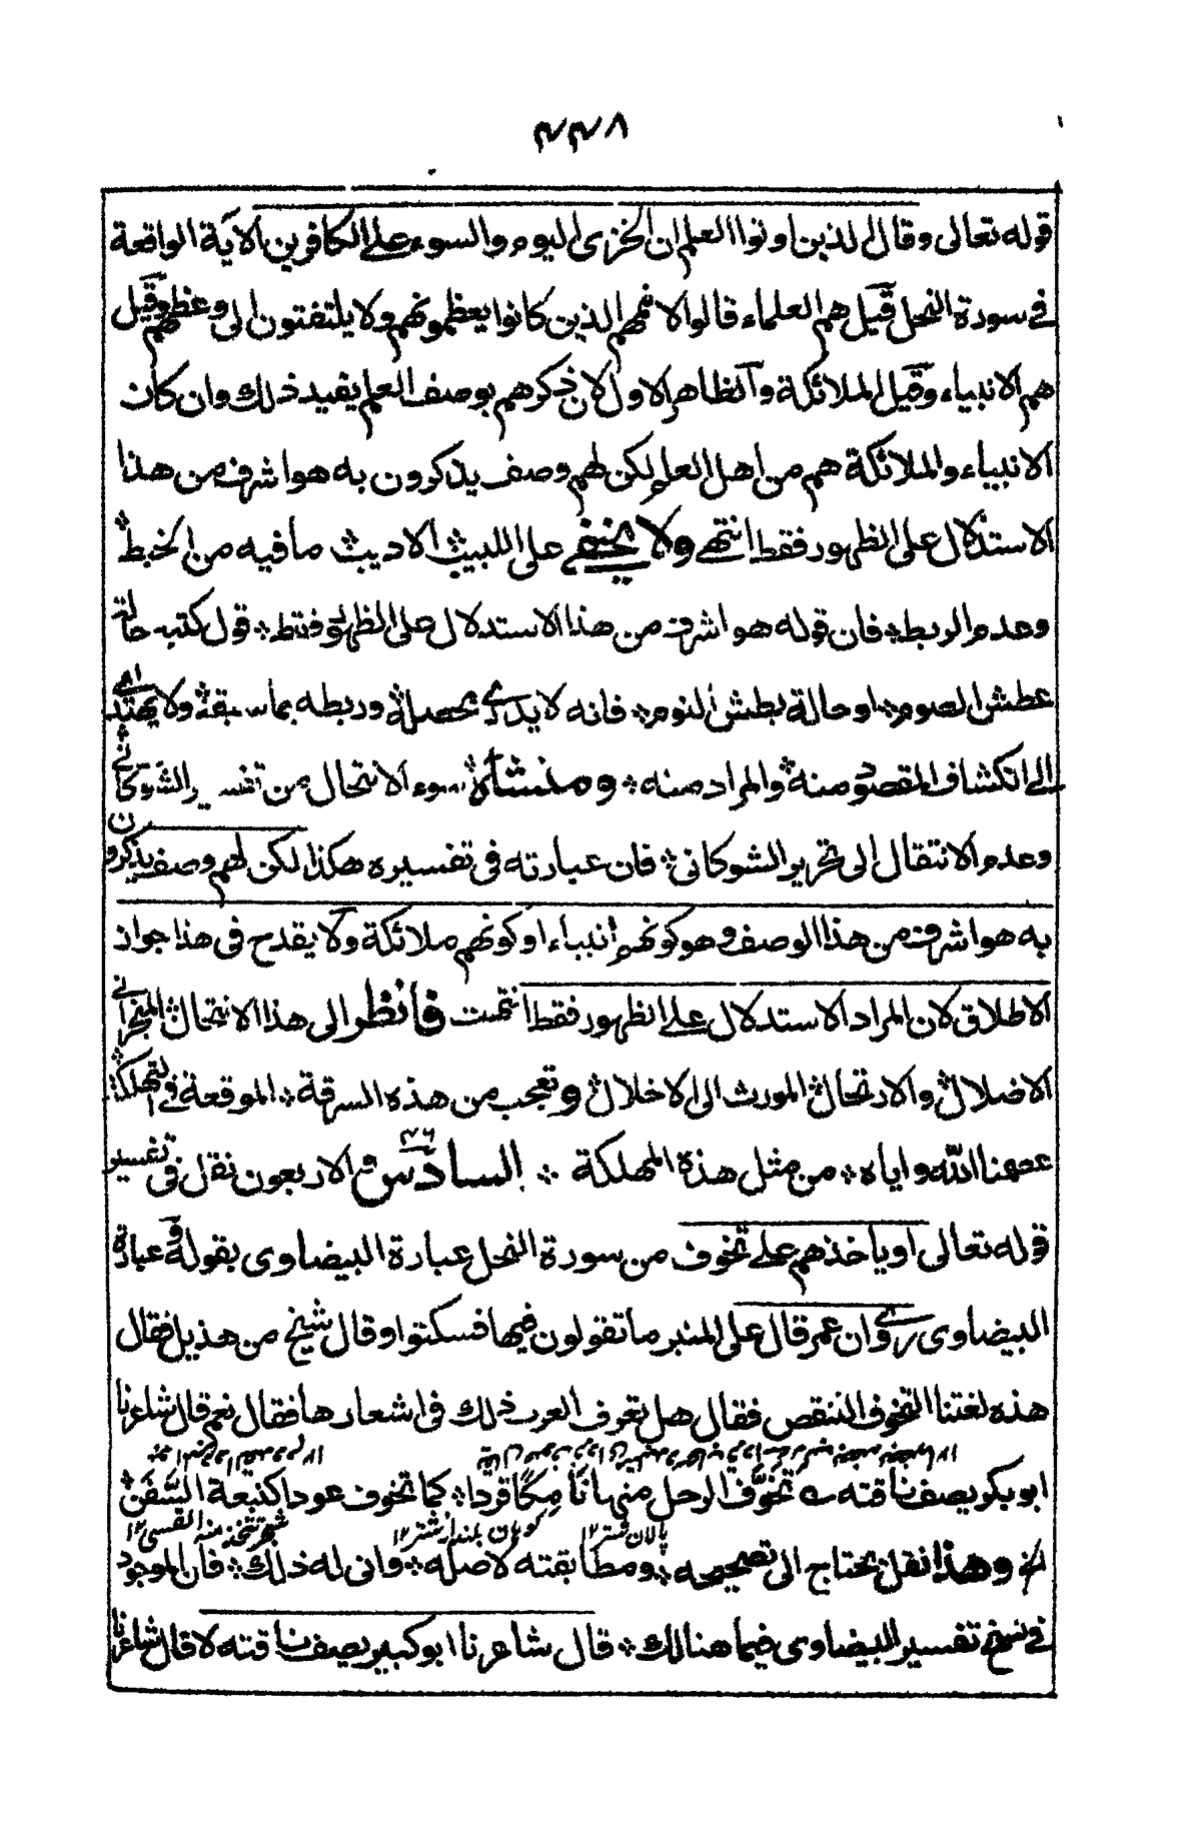 ۳۳۸
قوله تعالى وقال الذين اوتوا العلم ان الخزى اليوم والسوء على الكافرين الآية الواقعة
فى سورة النحل قيل هم العلماء قالوا لاممهم الذين كانوا يعظمونهم ولا يلتفتون الى وعظهم وقيل
هم الانبياء وقيل الملائكة والظاهر الاول لان ذكرهم بوصف العلم يفيد ذلك وان كان
الانبياء والملائكة هم من اهل العلم لكن لهم وصف يذكرون به هو اشرف من هذا
الاستدلال على الظهور فقط انتهى ولا يخفى على اللبيب الاديب ما فيه من الخبط
وعدم الربط فان قوله هو اشرف من هذا الاستدلال على الظهور فقط قول كتبه حالة
عطش الصوم او حالة بطش النوم فانه لا يدرى محصله وربطه بما سبقه ولا يهتدى
الى انكشاف المقصود منه والمراد منه ومنشاه سوء الانتحال من تفسير الشوكانى
وعدم الانتقال الى تحرير الشوكانى فان عبارته فى تفسيره هكذا لكن لهم وصف يذكرون
به هو اشرف من هذا الوصف وهو كونهم انبياء او كونهم ملائكة ولا يقدح فى هذا جواز
الاطلاق لان المراد الاستدلال على الظهور فقط انتهت فانظر الى هذا الانتحال المنجر الى
الاضلال والارتحال المورث الى الاخلال وتعجب من هذه السرقة الموقعة فى التهلكة
عصمنا الله واياه من مثل هذه المهلكة السادس والاربعون نقل فى تفسير
قوله تعالى او ياخذهم على تخوف من سورة النحل عبارة البيضاوى بقوله وعبارة
البيضاوى روى ان عمر قال على المنبر ما تقولون فيها فسكتوا وقال شيخ من هذيل فقال
هذه لغتنا التخوف التنقص فقال هل تعرف العرب ذلك فى اشعارها فقال نعم قال شاعرنا
ابو بكر يصف ناقته تخوف الرحل منها تامكا قردا كما تخوف عود النبعة السفن
الخ وهذا نقل يحتاج الى تصحيحه ومطابقته لاصله وانى له ذلك فان الموجود
پالان شتر ۱۲ كوهان بلند از شتر ۱۲ شجر تتخذ منه القسى ۱۲
فى نسخ تفسير البيضاوى فيما هنالك قال شاعرنا ابو كبير يصف ناقته لا قال شاعرنا